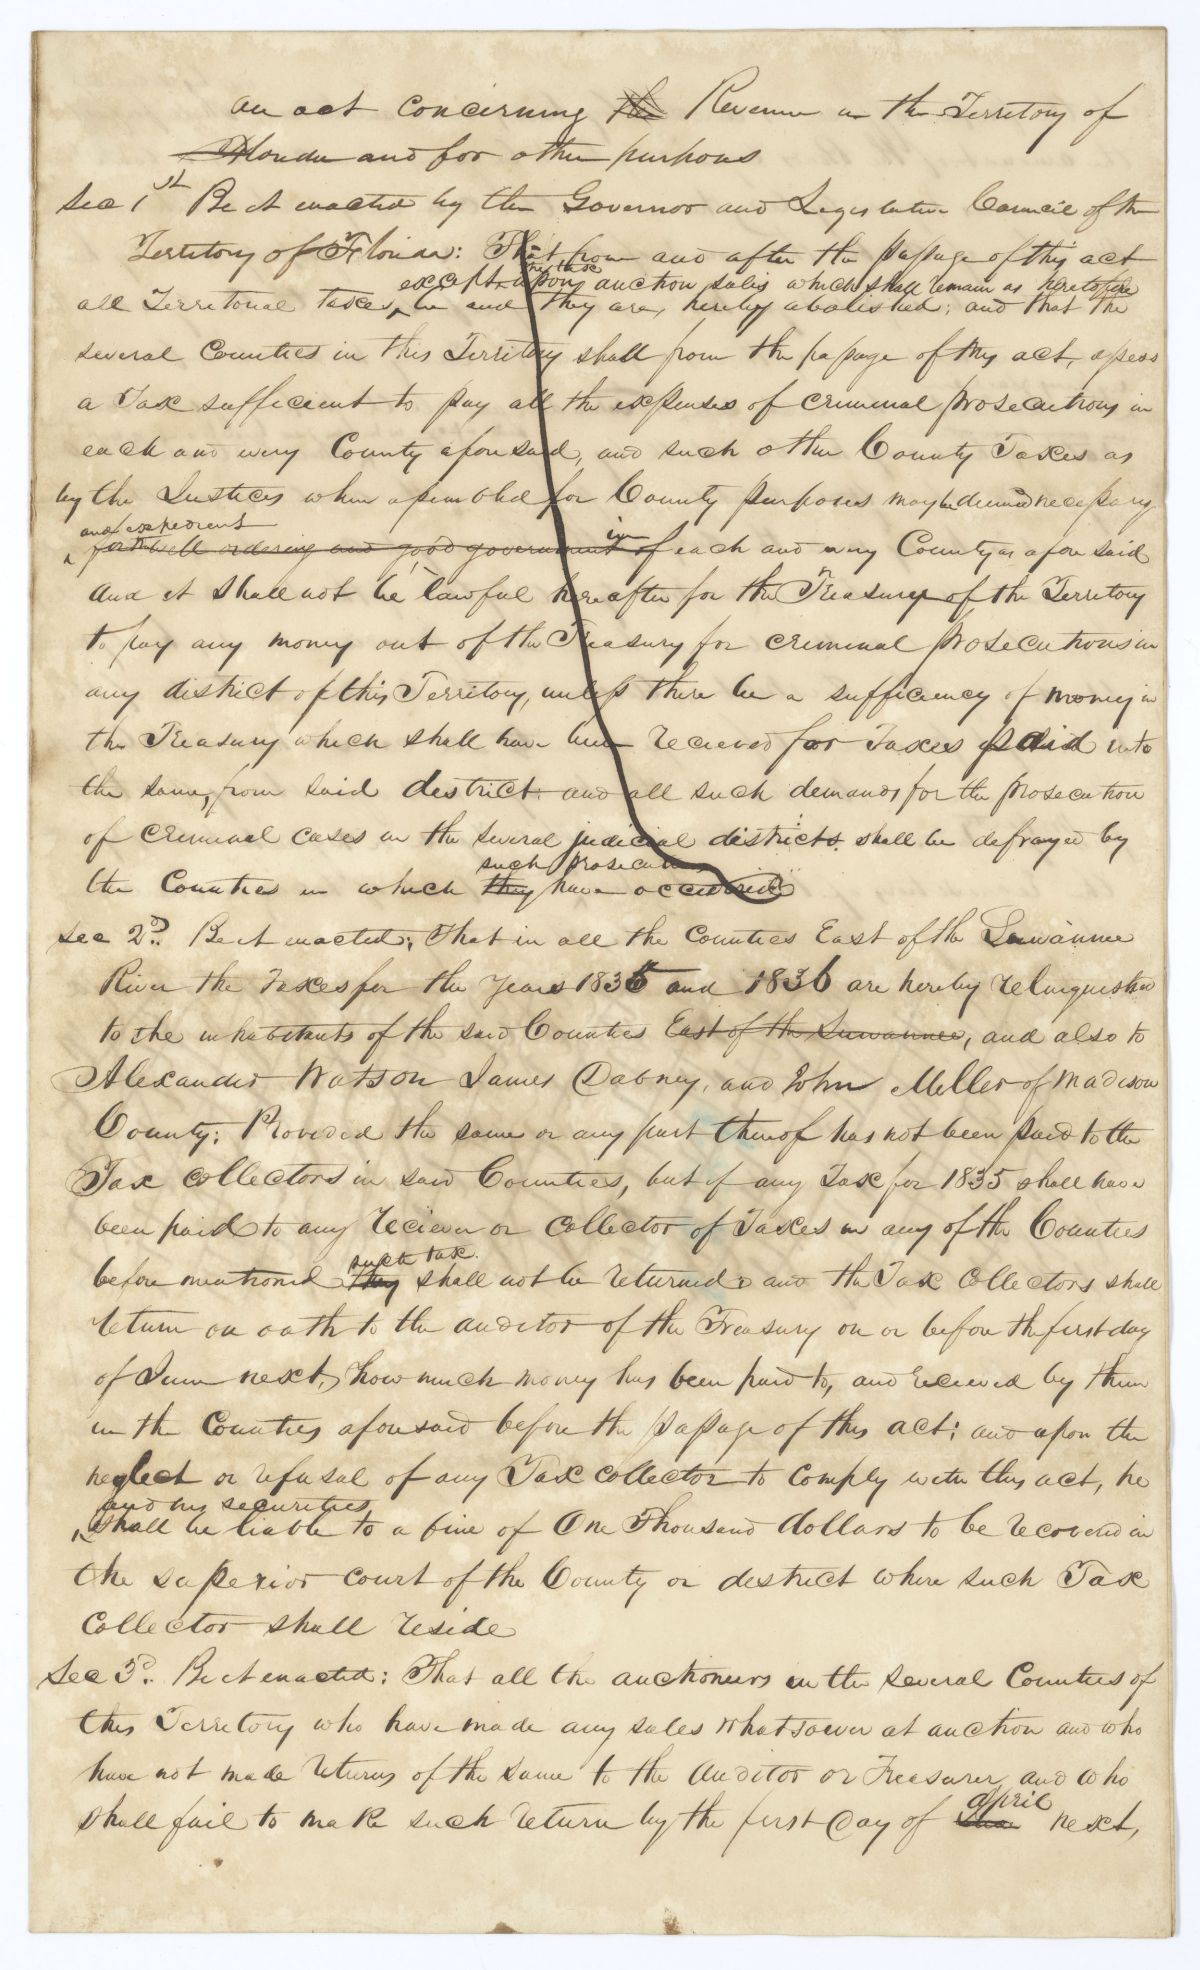 An act concerning the Revenue in the Territory of
Florida and for other purposes
Sec 1st Be it enacted by the Governor and Legislative Council of the
Territory of Florida: That from and after the passage of this act
except upon auction sales which shall remain as heretofore
all Territorial taxes, be and they are, hereby abolished; and that the
several Counties in this Territory shall from the passage of this act, assess
a Tax sufficient to pay all the expenses of criminal prosecutions in
each and every County aforesaid, and such other County Taxes as
by the Justices when assembled for County purposes may be deemed necessary
and expedient in
for the well ordering and good government of each and every County as aforesaid
And it shall not be lawful hereafter for the Treasury of the Territory
to pay any money out of the Treasury for criminal prosecutions in
any district of this Territory, unless there be a sufficiency of money in
the Treasury which shall have been recieved for Taxes paid into
the same, from said district. and all such demands for the prosecution
of criminal cases in the several judicial districts. shall be defrayed by
such prosecutions
the Counties in which they have occurred
Sec 2d. Be it enacted; That in all the counties East of the Suwannee
River the Taxes for the Years 1835 and 1836 are hereby relinquished
to the inhabitants of the said Counties East of the Suwannee, and also to
Alexander Watson James Dabney, and John Miller of Madison
County; Provided the same or any part thereof has not been paid to the
Tax collectors in said Counties, but if any Tax for 1835 shall have
been paid to any reciever or collector of Taxes in any of the Counties
such tax.
before mentioned they shall not be returned and the Tax Collectors shall
return on oath to the auditor of the Treasury on or before the first day
of June next, how much money has been paid to, and recieved by them
in the Counties aforesaid before the passage of this act; and upon the
neglect or refusal of any Tax collector to comply with this act, he
and his securities
shall be liable to a fine of One Thousand dollars to be recovered in
the superior court of the County or district where such Tax
Collector shall reside
Sec 3d. Be it enacted: That all the auctioneers in the several Counties of
this Territory who have made any sales whatsoever at auction and who
have not made returns of the same to the Auditor or Treasurer and who
april
shall fail to make such return by the first Day of next,